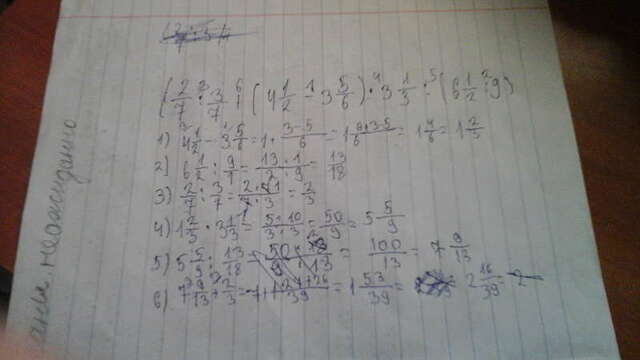 (2/7 : 3/7) (4 1/2 - 3 5/6) · 3 1/3 : (6 1/2 : 9)
1) 4 1/2 - 3 5/6 = 1 · 3-5/6 = = 1 4/6 = 1 2/3
2) 6 1/2 : 9/1 = 13·1/2·9 = 13/18
3) 2/7 : 3/7 = = 2/3
4) 1 2/3 · 3 1/3 = 5·10/3·3 = 50/9 = 5 5/9
5) 5 5/9 : 13/18 = = 100/13 = 7 9/13
6) 7 9/13 + 2/3 = = 1 53/39 = 2 16/39
неожиданно